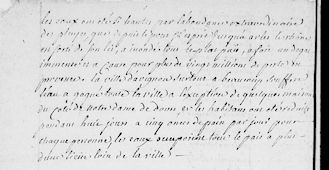 les eaux ont été si hautes par labondance extraordinaire
des pluyes que depuis le jusqua arles le rhône
est sorti de son lit, a inondé tous les plat pais, a fait un degat
immense il a causé pour plus de vingt millions de perte en
provence. la ville davignon surtout a beaucoup souffert
leau a vogué toute la ville a lexception de quelques maisons
du coté de notre dame de doms et les habitans ont été reduits
pendant huit jours a cinq onces de pain par jour pour
chaque personne, les eaux occupoient tout le pais a plus
dune lieue loin de la ville